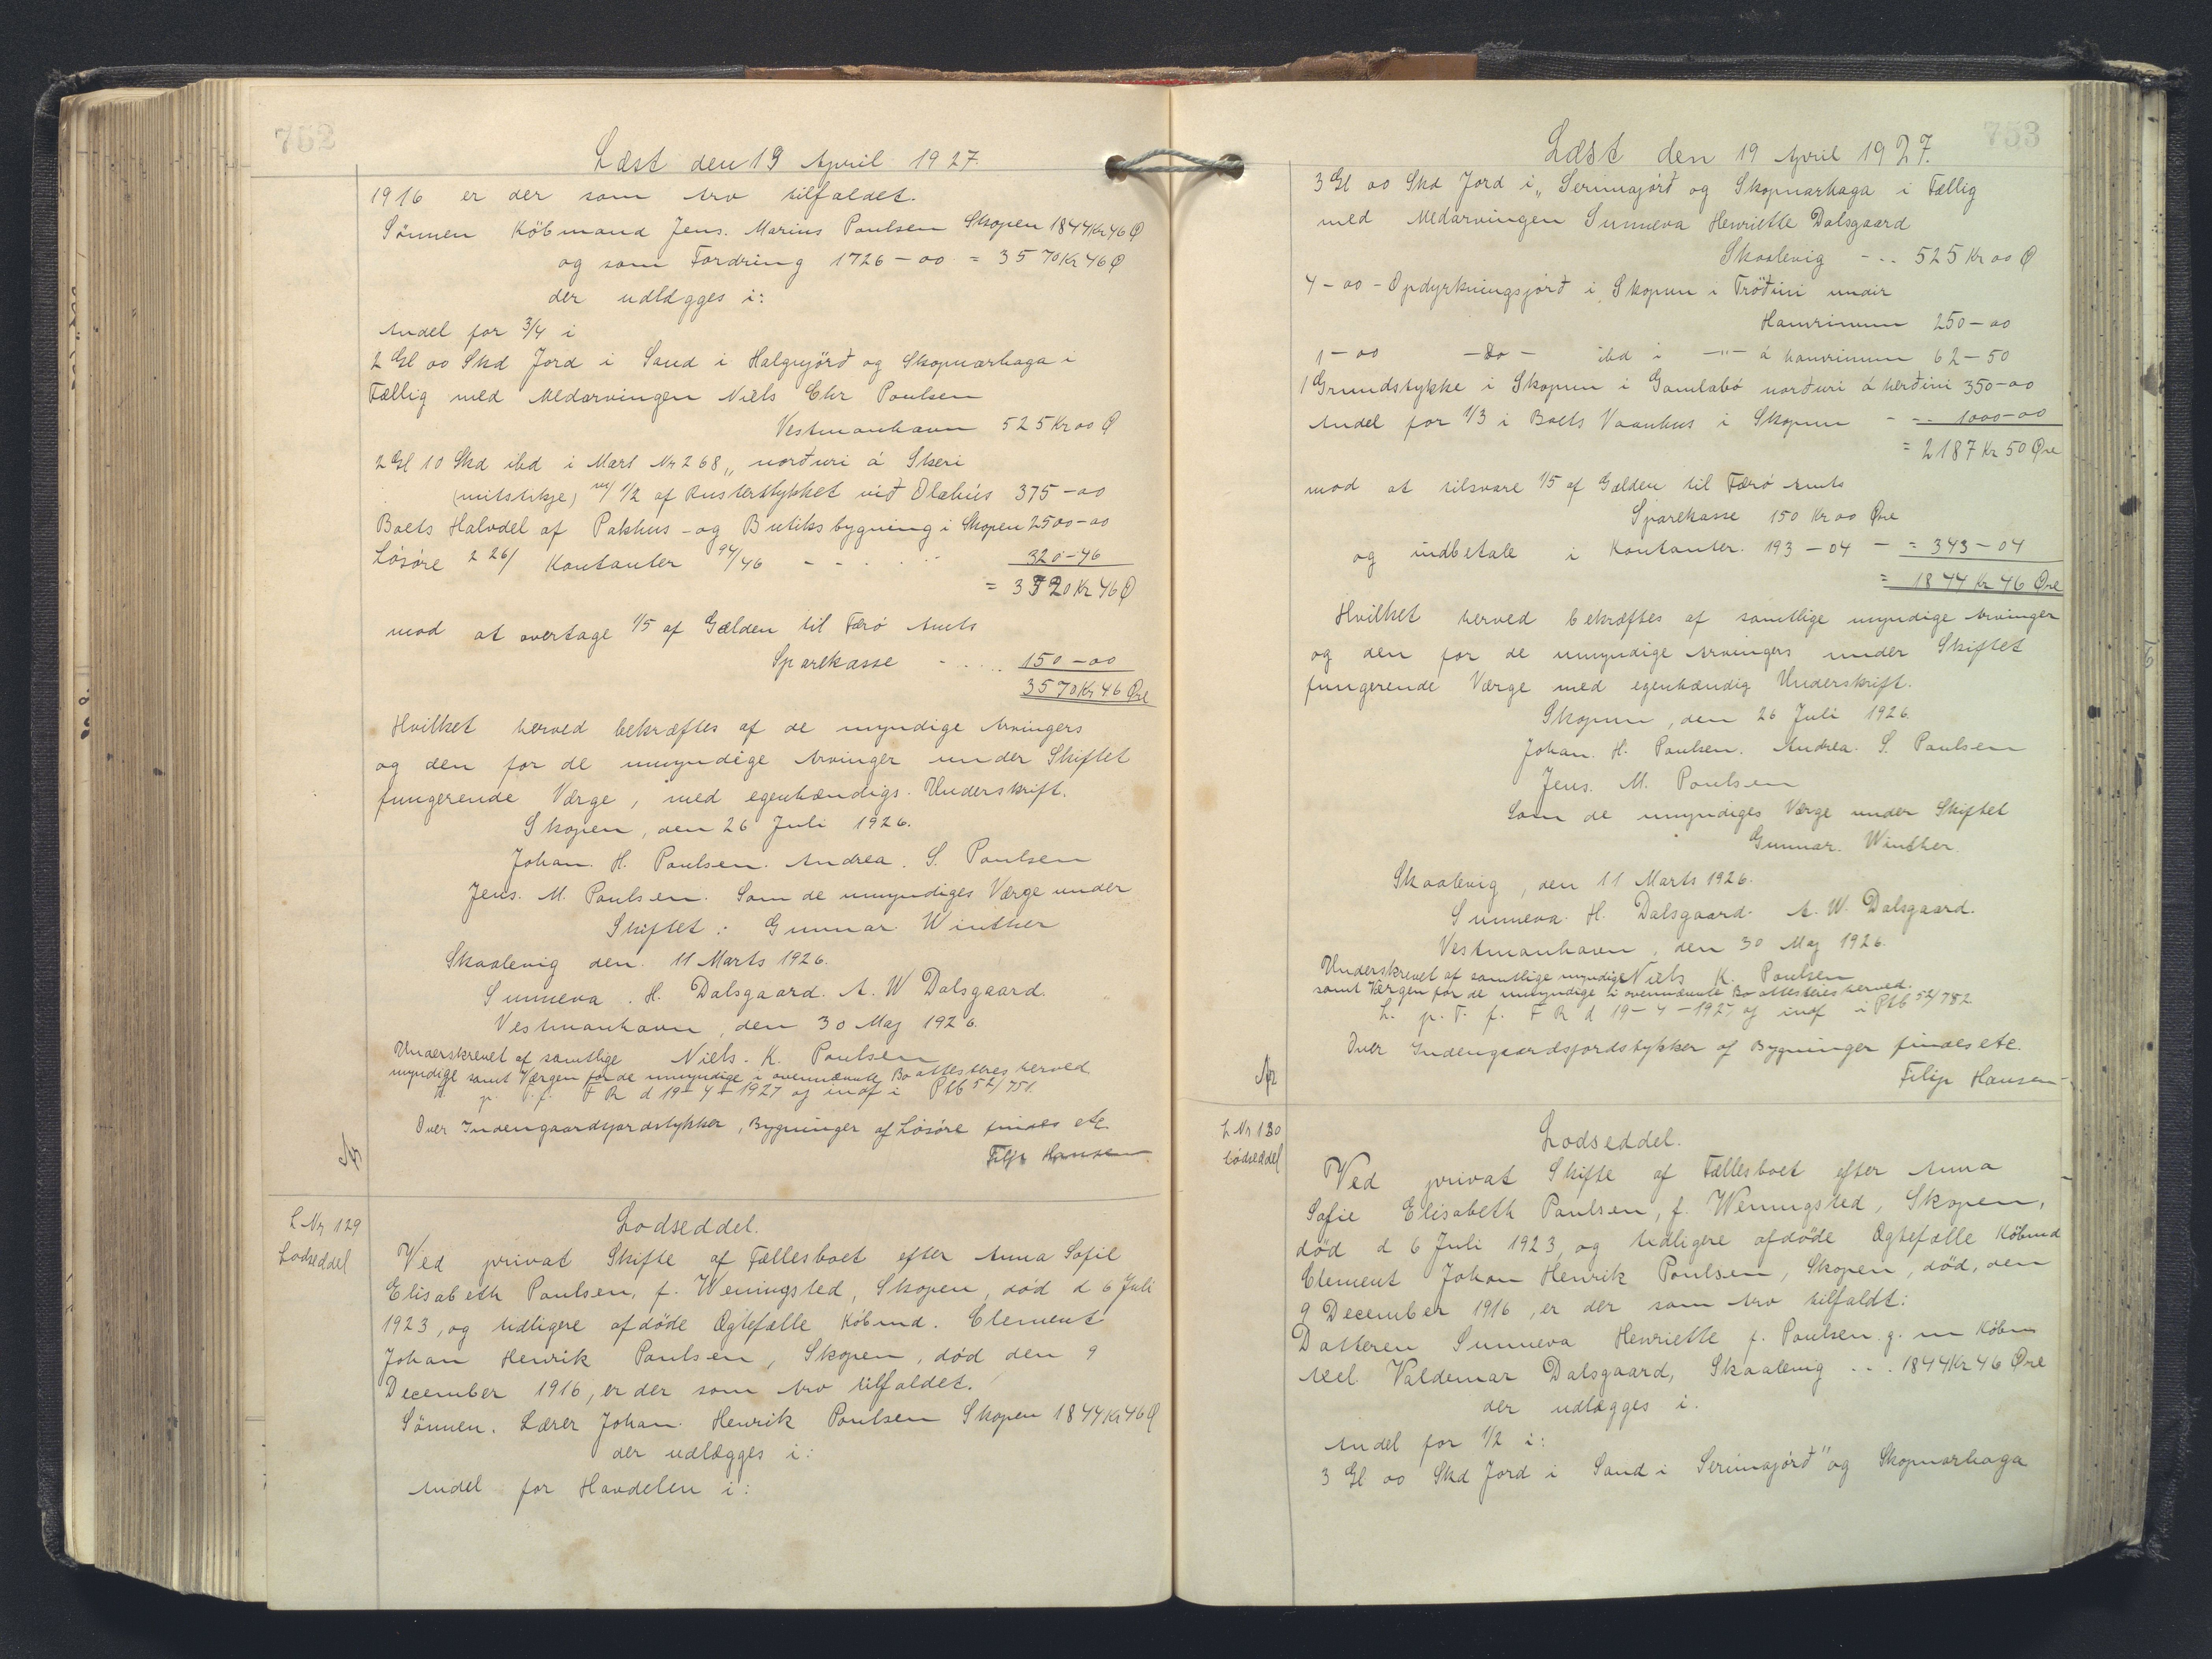 752
Læst den 19 April 1927.
1916 er der som Arv tilfaldet.
Sønnen Købmand Jens. Marius Poulsen Skopen 1844 Kr 46 Ø
og som Fordring 1726 - 00 = 3570 Kr 46 Ø
der udlægges i:
Andel for 3/4 i
2 Gl 00 Skd Jord i Sand i Halgujörð og Skopnarhaga i
Fællig med Medarvingen Niels Chr Poulsen
Vestmanhavn 525 Kr 00 Ø
2 Gl 10 Skd ibd i Mært Nr 268 „ norðuri á Skeri
(mitstikje) m/ 1/2 af Rusterstykket við Olahús 375 - 00
Boets Halvdel af Pakhus - og Butiksbygning i Skopen 2500 - 00
Løsøre 226/ Kontanter 94/46 - - . . . 320 - 46
= 3720 Kr 46 Ø
mod at overtage 1/5 af Gælden til Færø Amts
Sparekasse - . . . . 150 - 00
3570 Kr 46 Øre
Hvilket herved bekræftes af de myndige Arvingers
og den for de umyndige Arvinger under Skiftet
fungerende Værge, med egenhændigs Underskrift.
Skopen, den 26 Juli 1926.
Johan. H. Poulsen. Andrea. S. Poulsen
Jens. M. Poulsen. Som de umyndiges Værge under
Skiftet: Gunnar Winther
Skaalevig den. 11 Marts 1926.
Sunneva. H. Dalsgaard. A. W Dalsgaard.
Vestmanhavn, den 30 Maj 1926.
Underskrevet af samtlige Niels. K. Poulsen
myndige samt Værgen for de umyndige i ovennævnte Bo attesteres herved
p. T. f. F R d 19 - 4 - 1927 og indf i Ptb 52/751.
Over Indengaardsjordstykker, Bygninger af Løsøre findes etc.
Filip Hansen
L Nr 129
Lodseddel
Lodseddel.
Ved privat Skifte af Fællesboet efter Anna Sofie
Elisabeth Poulsen, f. Wenningsted, Skopen, død d 6 Juli
1923, og tidligere afdøde Ægtefælle Købmd. Clement
Johan Henrik Poulsen, Skopen, død den 9
December 1916, er der som Arv tilfaldet.
Sønnen. Lærer Johan. Henrik Poulsen Skopen 1844 Kr 46 Ø
der udlægges i:
Andel for Havdelen i:
753
Læst den 19 April 1927.
3 Gl 00 Skd Jord i „ Serimajörð og Skopnarhaga i Fællig
med Medarvingen Sunneva Henriette Dalsgaard
Skaalevig - . . 525 Kr 00 Ø
4 - 00 - Opdyrkningsjörð i Skopun i Tröðini undir
Hamrinum 250 - 00
1 - 00 - Do - ibd i - " - á hamrinum 62 - 50
1 Grundstykke i Skopun i Gamlabø norðuri á herðini 350 - 00
Andel for 1/3 i Boets Vaanhus i Skopun - - . 1000 - 00
= 2187 Kr 50 Øre
mod at tilsvare 1/5 af Gælden til Færø Amts
Sparekasse 150 Kr 00 Øre
og indbetale i Kontanter. 193 - 04 - = 343 - 04
= 1844 Kr 46 Øre
Hvilket herved bekræftes af samtlige myndige Arvinger
og den for de umyndige Arvingers under Skiftet
fungerende Værge med egenhændig Underskrift.
Skopun, den 26 Juli 1926.
Johan. H. Poulsen. Andrea. S. Poulsen
Jens. M. Poulsen
Som de umyndiges Værge under Skiftet
Gunnar. Winther.
Skaalevig, den 11 Marts 1926.
Sunneva. H. Dalsgaard. A. W. Dalsgaard.
Vestmanhavn, den 30 Maj 1926.
Underskrevet af samtlige myndige Niels K. Poulsen
samt Værgen for de umyndige i ovennævnte Bo attesteres herved.
L. p. T. f. F R d 19 - 4 - 1927 og indf i Ptb 52/782
Over Indengaardsjordstykker af Bygninger findes etc.
Filip Hansen
L Nr 130
Lodseddel
Lodseddel.
Ved privat Skifte af Fællesboet efter Anna
Sofie Elisabeth Poulsen, f. Wenningsted, Skopen,
død d 6 Juli 1923, og tidligere afdøde Ægtefælle Købmd
Clement Johan Henrik Poulsen, Skopen, død, den
9 December 1916, er der som Arv tilfaldt:
Datteren Sunneva Henriette f. Poulsen. g. m Købm
Axel Valdemar Dalsgaard, Skaalevig . . . 1844 Kr 46 Øre
der udlægges i.
Andel for 1/2 i:
3 Gl 00 Skd Jord i Sand i Serimajörð" og Skopnarhaga